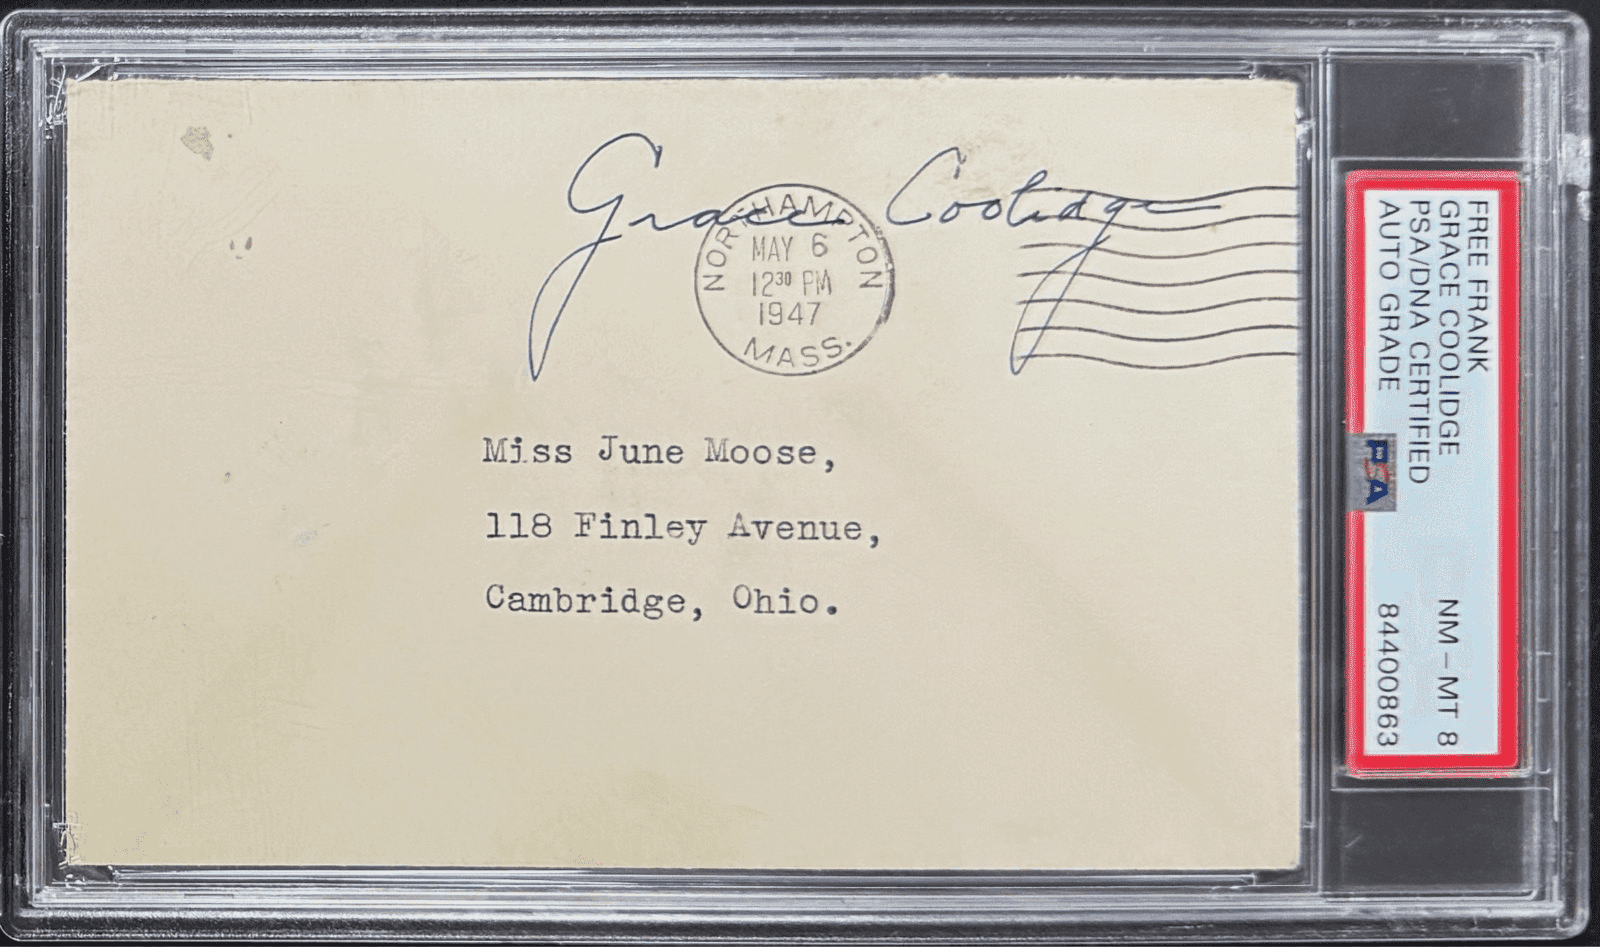 Grace Coolidge
NORTHAMPTON
MAY 6
12³⁰ PM
1947
MASS.
Miss June Moose,
118 Finley Avenue,
Cambridge, Ohio.
FREE FRANK
GRACE COOLIDGE NM-MT 8
PSA/DNA CERTIFIED
AUTO GRADE 84400863
PSA